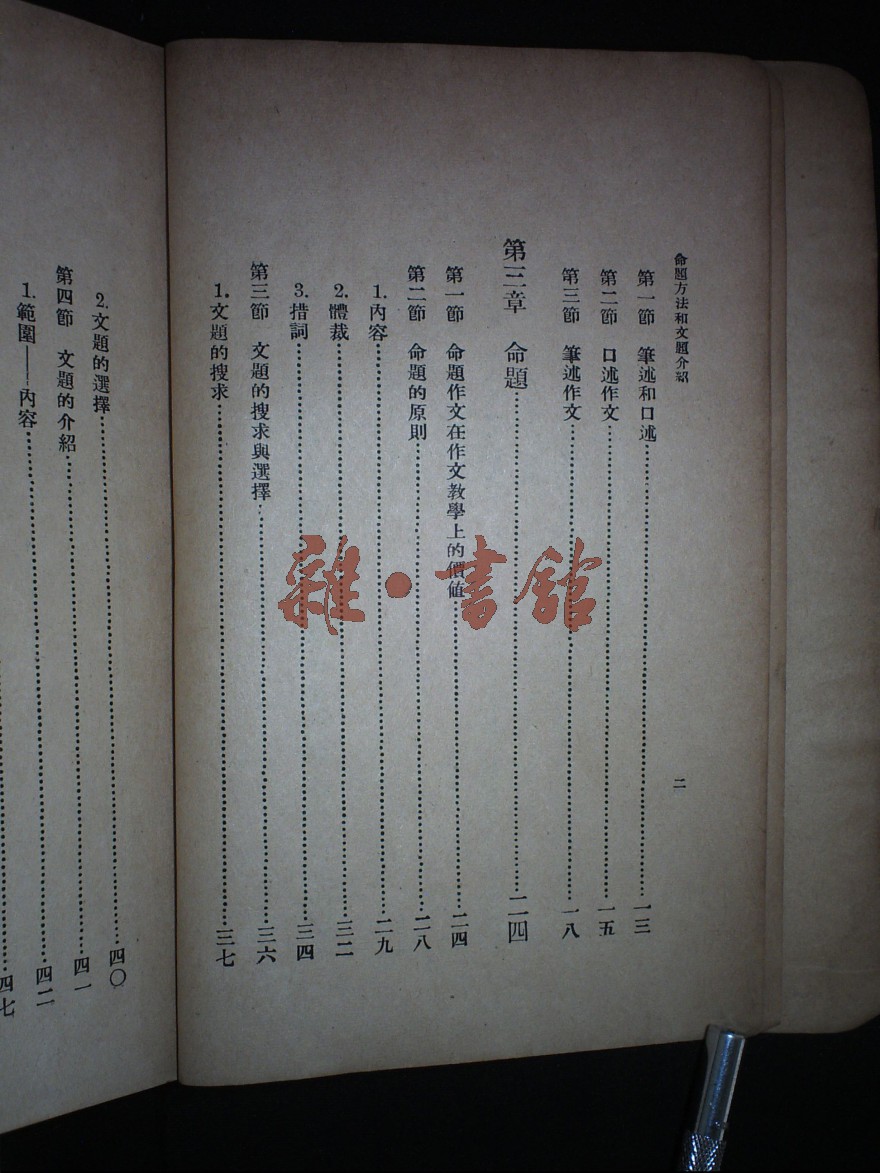 命題方法和文題介紹
二
第一節 筆述和口述……一三
第二節 口述作文……一五
第三節 筆述作文……一八
第三章 命題……二四
第一節 命題作文在作文教學上的價値……二四
第二節 命題的原則……二八
1.內容……二九
2.體裁……三二
3.措詞……三四
第三節 文題的搜求與選擇……三六
1.文題的搜求……三七
2.文題的選擇……四〇
第四節 文題的介紹……四一
1.範圍——內容……四二
四七
雜·書館